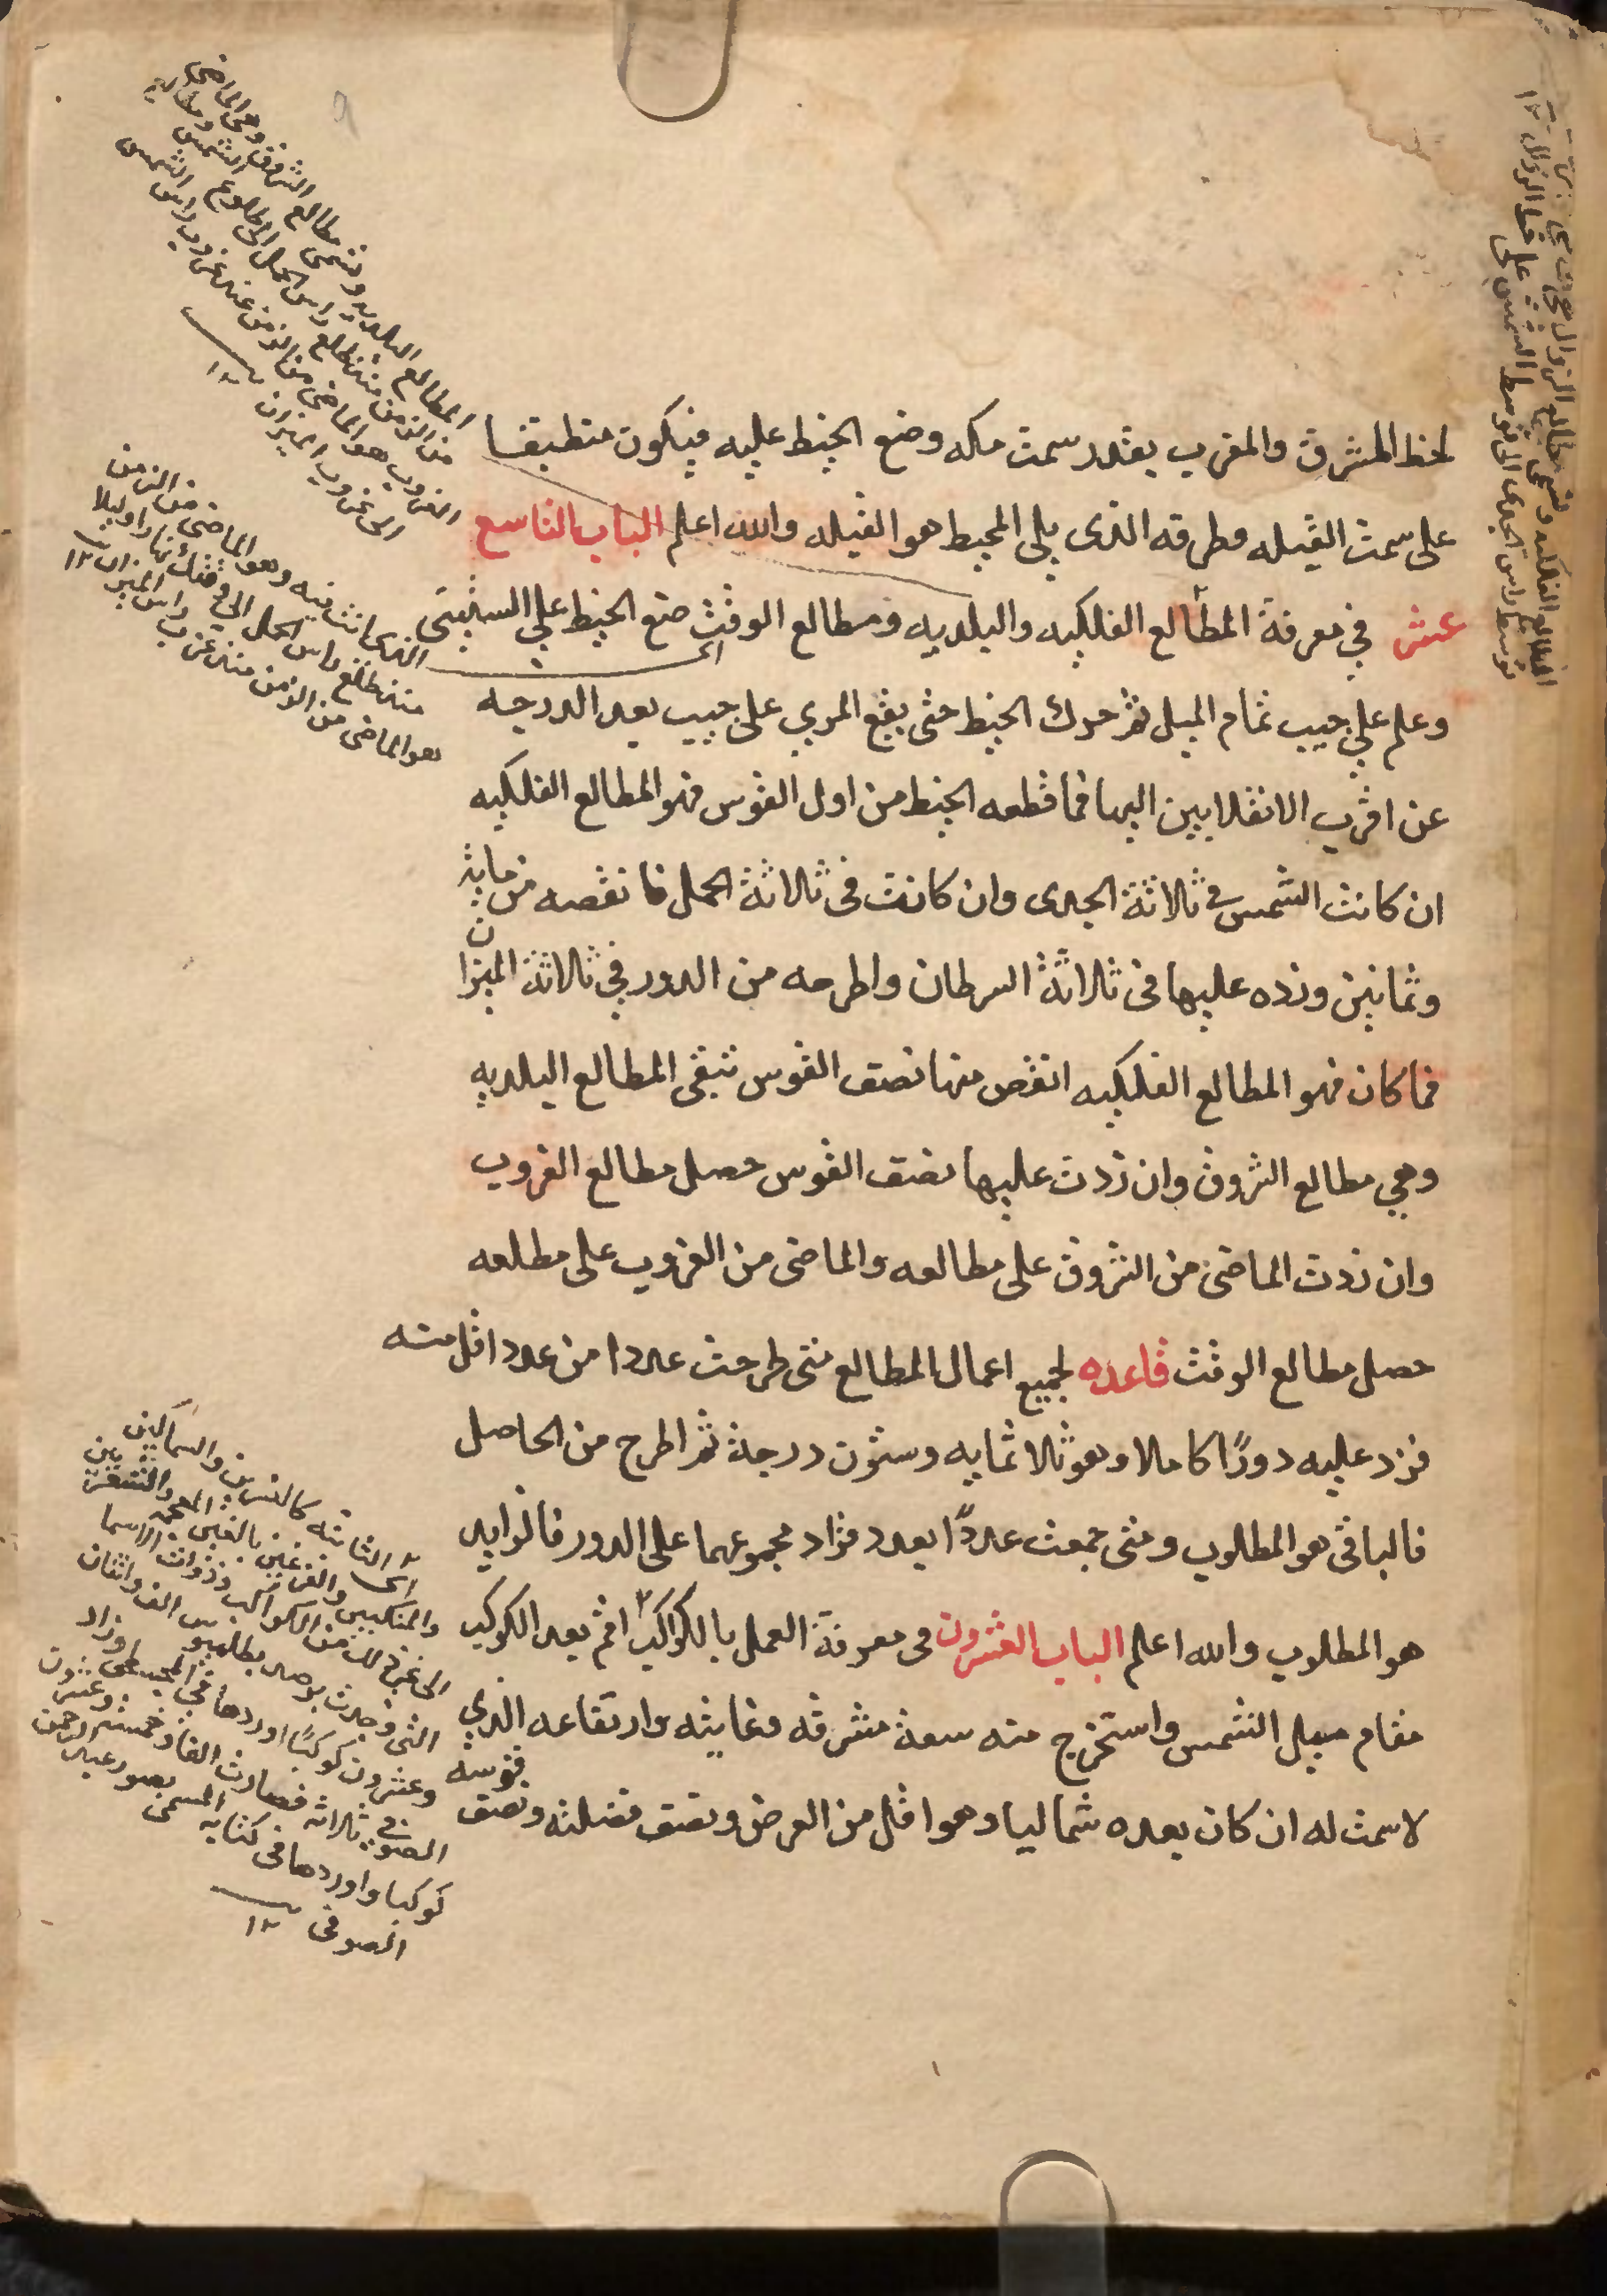 لخط المشرق والمغرب بقدر سمت مكه وضع الخيط عليه فيكون منطبقا
على سمت القبله وطرفه الذى يلى المحيط هو القبله والله اعلم الباب التاسع
عشر في معرفة المطالع الفلكيه والبلديه ومطالع الوقت ضع الخيط على الستينى
وعلم على جيب تمام الميل ثم حرك الخيط حتى يقع المري على جيب بعد الدرجه
عن اقرب الانقلابين اليها فما قطعه الخيط من اول القوس فهو المطالع الفلكيه
ان كانت الشمس في ثلاثة الجدى وان كانت فى ثلاثة الحمل فانقصه من مايه
وثمانين وزده عليها فى ثلاثة السرطان واطرحه من الدور في ثلاثة الميزان
فما كان فهو المطالع الفلكيه انقص منها نصف القوس تبقى المطالع البلديه
وهي مطالع الشروق وان زدت عليها نصف القوس حصل مطالع الغروب
وان زدت الماضى من الشروق على مطالعه والماضى من الغروب على مطلعه
حصل مطالع الوقت قاعده لجميع اعمال المطالع متى طرحت عددا من عدد اقل منه
فزد عليه دورًا كاملا وهو ثلاثمايه وستون درجة ثم اطرح من الحاصل
فالباقى هو المطلوب ومتى جمعت عددًا بعدد فزاد مجموعهما على الدور فالزايد
هو المطلوب والله اعلم الباب العشرون فى معرفة العمل بالكواكب ٢ اقم بعد الكوكب
مقام ميل الشمس واستخرج منه سعة مشرقه وغايته وارتفاعه الذي
لا سمت له ان كان بعده شماليا وهو اقل من العرض ونصف فضلته ونصف
قوسه
المطالع البلديه وتسمى مطالع الشروق وهى الماضى
من الزمن منذ طلع راس الحمل الى طلوع الشمس ومطالع
الغروب هو الماضى من الزمن عند غروب راس
الى غروب الميزان ١٢
الذى انت فيه وهو الماضى من الزمن
منذ طلع راس الحمل الى وقتك نهارا وليلا
هو الماضى من الزمن منذ غرب راس الميزان ١٢
اى الثابته كالنسرين والسماكين
والمنكبين والفرغين بالغين المعجمه
الى غير ذلك من الكواكب ذوات الاسما
التى وجدت برصد بطلميوس الف واثنان
وعشرون كوكبًا اوردها في المجسطى وزاد
الصوفي ثلاثه فصارت الفا وخمسه وعشرون
كوكبا واوردها فى كتابه المسمى بصور عبد الرحمن
الصوفى ١٢